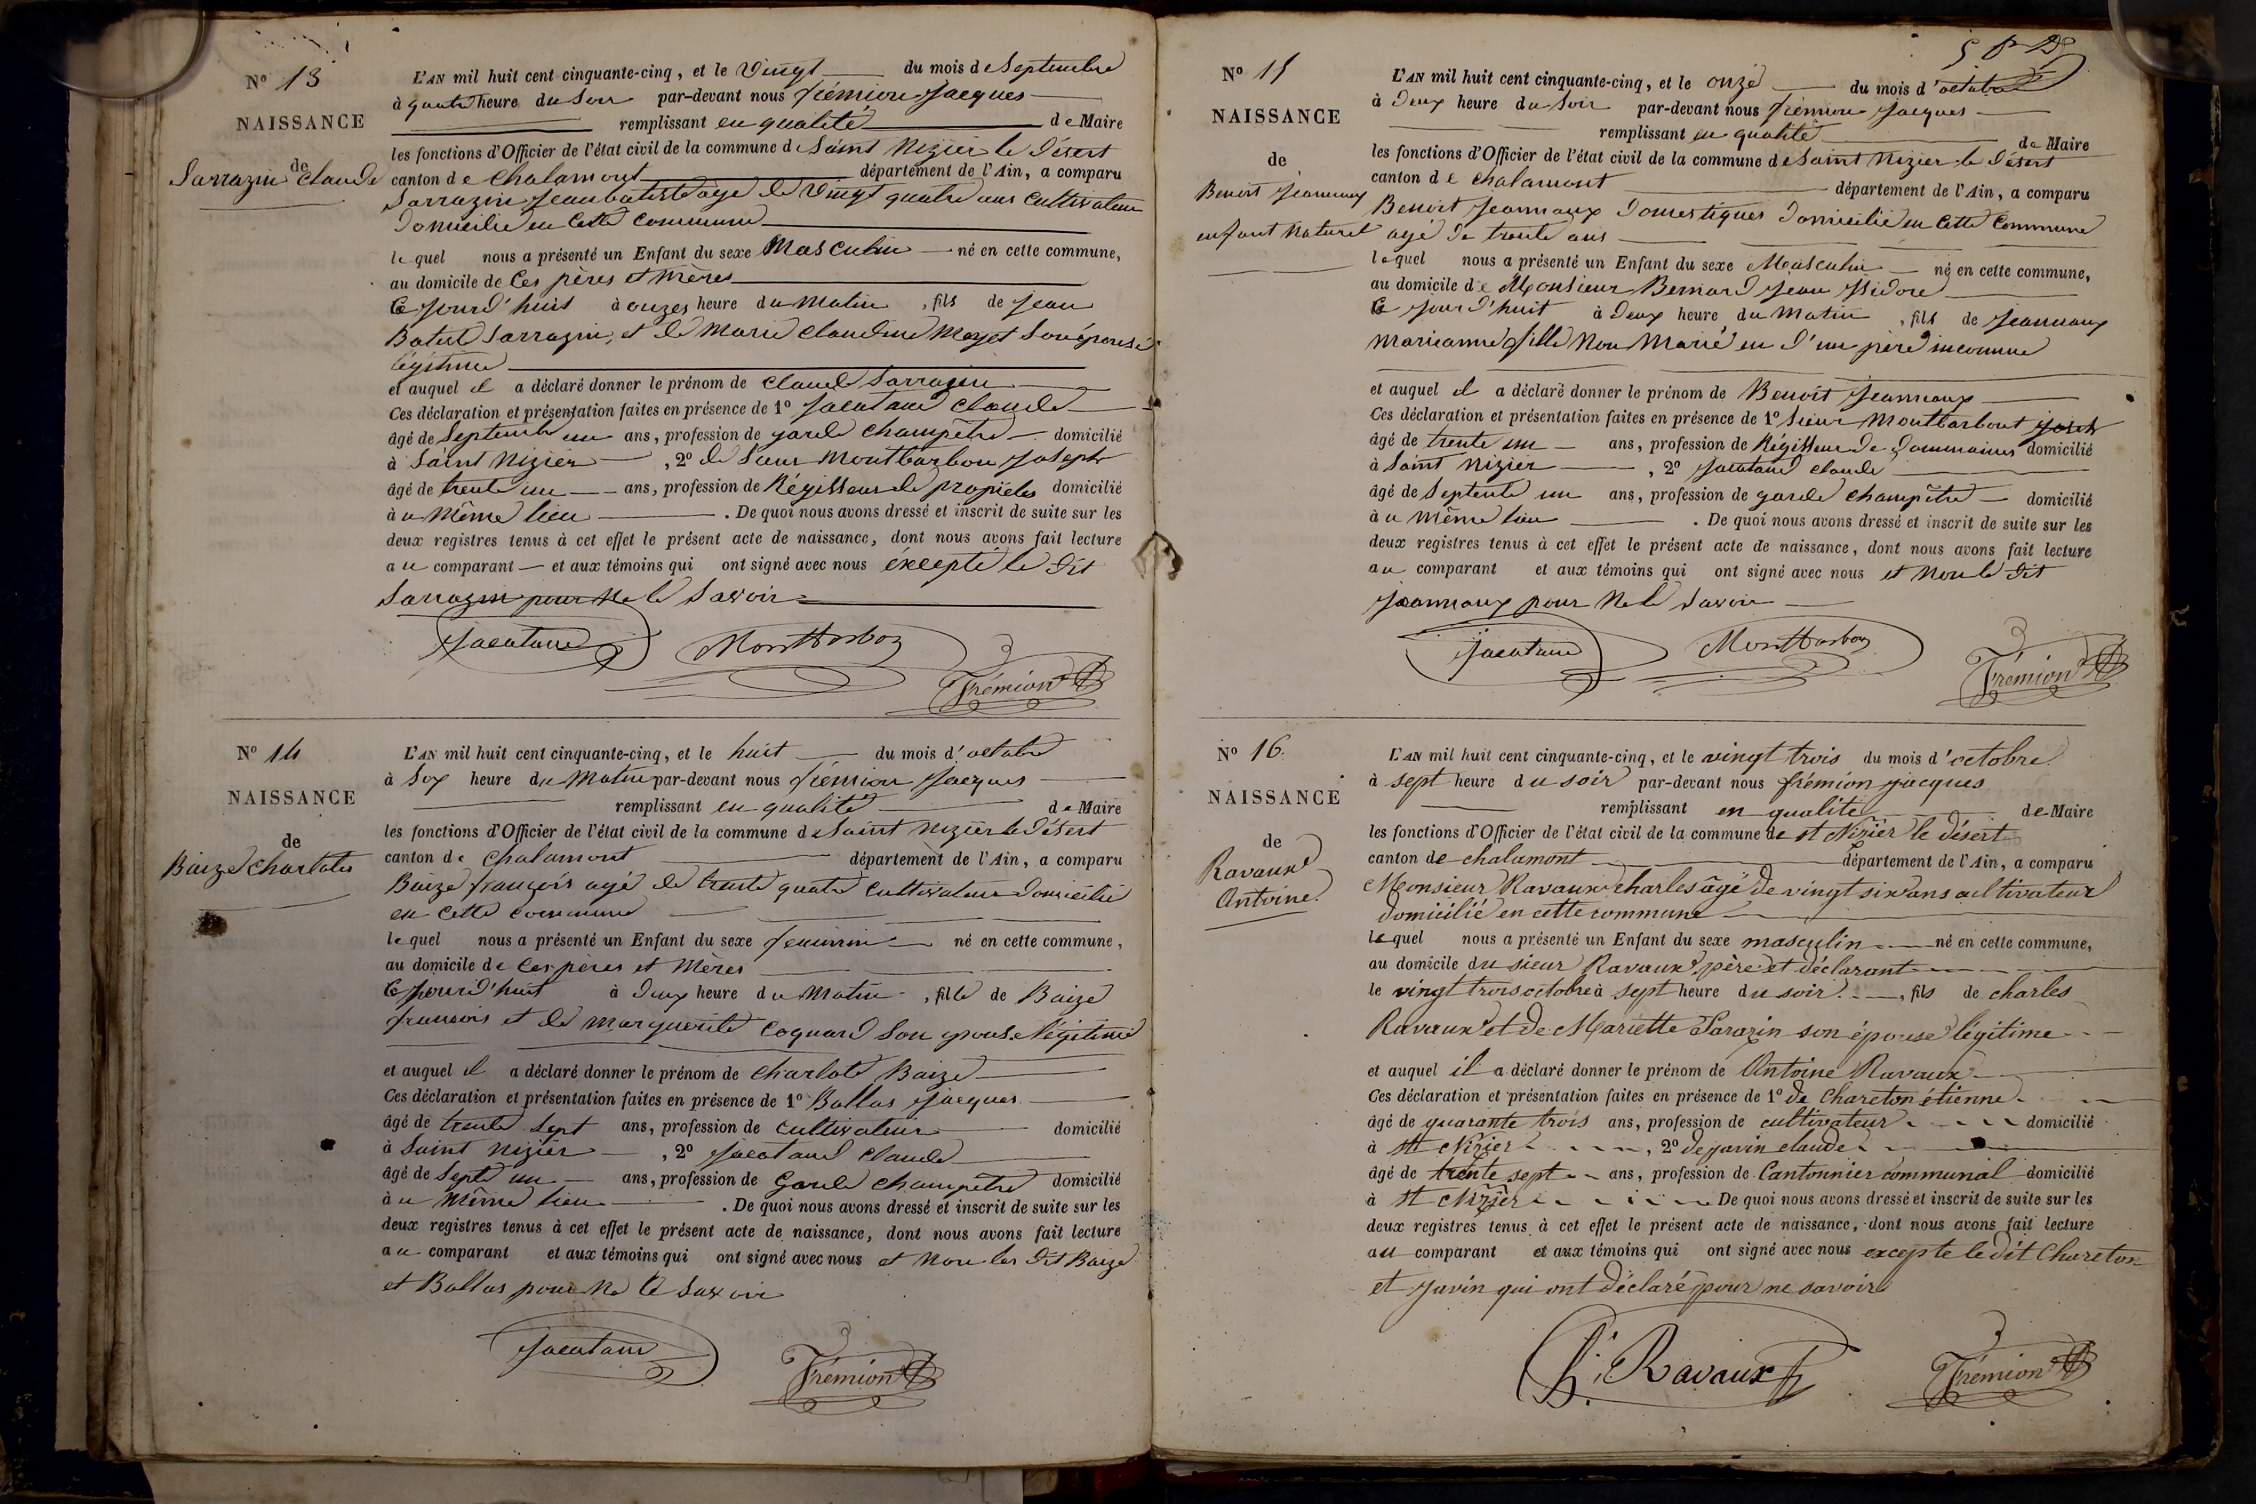 N° 13
NAISSANCE
de
Sarrazin Claude
L'AN mil huit cent cinquante-cinq, et le Vingt du mois de Septembre
à quatre heure du Soir par-devant nous frémion Jacques
remplissant en qualité de Maire
les fonctions d'Officier de l'état civil de la commune de Saint Nizier le Désert
canton de Chalamont département de l'Ain, a comparu
Sarrazin Jean batiste âge de Vingt quatre ans Cultivateur
Domicilié en Cette Commune
lequel nous a présenté un Enfant du sexe Masculin né en cette commune,
au domicile de Ces pères et Mères
Ce Jourd'huit à onzes heure du Matin, fils de Jean
Batist Sarrazin, et de Marie Claudine Moyet Son épouse
légitime
et auquel il a déclaré donner le prénom de Claude Sarrazin
Ces déclaration et présentation faites en présence de 1° Jacutand Claude
âgé de Septente un ans, profession de garde Champêtre domicilié
à Saint Nizier, 2° de Sieur Montbarbon Joseph
âgé de trente un ans, profession de Régisseur de propiétes domicilié
à u Même lieu. De quoi nous avons dressé et inscrit de suite sur les
deux registres tenus à cet effet le présent acte de naissance, dont nous avons fait lecture
au comparant et aux témoins qui ont signé avec nous éxcepté le Dit
Sarrazin pour Ne le Savoir
Jacutand Montbarbon Frémion
N° 14
NAISSANCE
de
Baize Charlotes
L'AN mil huit cent cinquante-cinq, et le huit du mois d'octobre
à Six heure du Matin par-devant nous frémion Jacques
remplissant en qualité de Maire
les fonctions d'Officier de l'état civil de la commune de Saint Nizier le Désert
canton de Chalamont département de l'Ain, a comparu
Baize françois agé de trente quatre Cultivateur Domicilié
en Cette Commune
lequel nous a présenté un Enfant du sexe feminin né en cette commune,
au domicile de Ces pères et Mères
Ce Jourd'huit à Deux heure du Matin, fille de Baize
francois et de Marguerite Coquard Son epouse légitime
et auquel il a déclaré donner le prénom de Charlote Baize
Ces déclaration et présentation faites en présence de 1° Ballas Jacques
âgé de trente Sept ans, profession de Cultivateur domicilié
à Saint Nizier, 2° Jacutand Claude
âgé de Septe un ans, profession de Garde Champetre domicilié
à u Même lieu. De quoi nous avons dressé et inscrit de suite sur les
deux registres tenus à cet effet le présent acte de naissance, dont nous avons fait lecture
au comparant et aux témoins qui ont signé avec nous et Non les Dit Baize
et Ballas pour Ne le Savoir
Jacutand Frémion
N° 15
NAISSANCE
de
Benoit Jeannaux
enfant Naturel
L'AN mil huit cent cinquante-cinq, et le onze du mois d'octobre
à Deux heure du Soir par-devant nous frémion Jacques
remplissant en qualité de Maire
les fonctions d'Officier de l'état civil de la commune de Saint Nizier le Désert
canton de Chalamont département de l'Ain, a comparu
Benoit Jeannaux Domestiques Domicilié en Cette Commune
agé de trente ans
lequel nous a présenté un Enfant du sexe Masculin né en cette commune,
au domicile de Monsieur Bernard Jean Isidore
Ce Jourd'huit à Deux heure du Matin, fils de Jeannaux
Marieanne fille Non Marié en d'un père inconnue
et auquel il a déclaré donner le prénom de Benoit Jeannaux
Ces déclaration et présentation faites en présence de 1° Sieur Montbarbont Joseph
âgé de trente un ans, profession de Régisseur de Dommaines domicilié
à Saint Nizier, 2° Jacutand Claude
âgé de Septente un ans, profession de garde Champêtre domicilié
à u Même lieu. De quoi nous avons dressé et inscrit de suite sur les
deux registres tenus à cet effet le présent acte de naissance, dont nous avons fait lecture
au comparant et aux témoins qui ont signé avec nous et Non le Dit
Jeannaux pour Ne le Savoir
Jacutand Montbarbon Frémion
N° 16
NAISSANCE
de
Ravaux
Antoine
L'AN mil huit cent cinquante-cinq, et le vingt trois du mois d'octobre
à sept heure du soir par-devant nous frémion jacques
remplissant en qualité de Maire
les fonctions d'Officier de l'état civil de la commune de st Nizier le désert
canton de chalamont département de l'Ain, a comparu
Monsieur Ravaux charles âgé de vingt six ans cultivateur
domicilié en cette commune
lequel nous a présenté un Enfant du sexe masculin né en cette commune,
au domicile du sieur Ravaux père et déclarant
le vingt trois octobre à sept heure du soir, fils de charles
Ravaux et de Mariette Sarazin son épouse légitime
et auquel il a déclaré donner le prénom de Antoine Ravaux
Ces déclaration et présentation faites en présence de 1° de Chareton étienne
âgé de quarante trois ans, profession de cultivateur domicilié
à st Nizier, 2° de javin claude
âgé de trente sept ans, profession de Cantonnier communal domicilié
à st Nizier De quoi nous avons dressé et inscrit de suite sur les
deux registres tenus à cet effet le présent acte de naissance, dont nous avons fait lecture
au comparant et aux témoins qui ont signé avec nous excepte le dit Chareton
et javin qui ont déclaré pour ne savoir
Ravaux Frémion